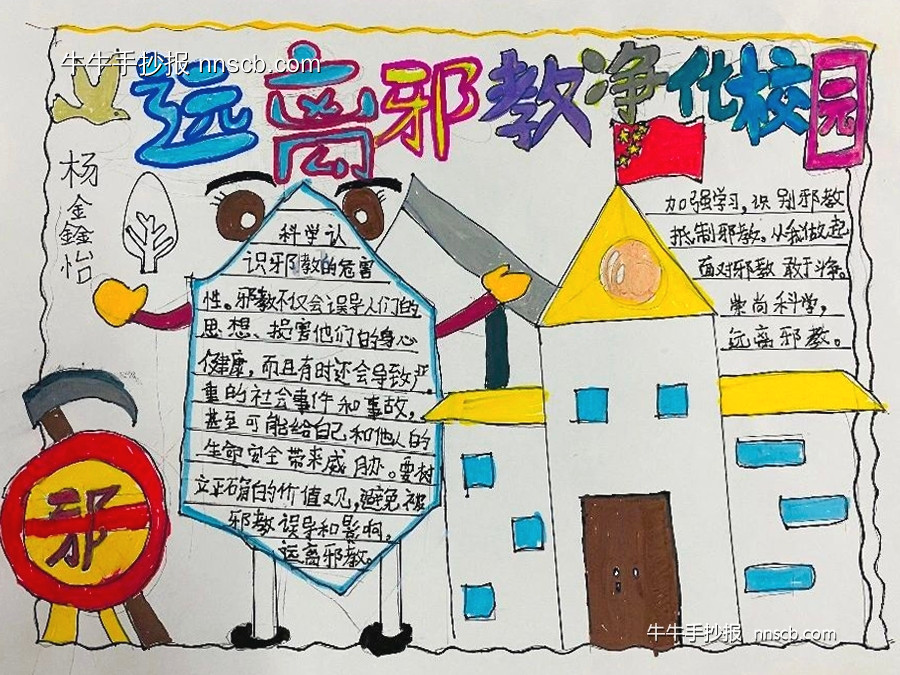 牛牛手抄报 nnscb.com
远离邪教净化校园
杨金鑫怡
科学认
识邪教的危害
性。邪教不仅会误导人们的
思想、损害他们的身心
健康，而且有时还会导致严
重的社会事件和事故，
甚至可能给自己和他人的
生命安全带来威胁。要树
立正确的价值观，避免被
邪教误导和影响。
远离邪教。
加强学习，识别邪教
抵制邪教。从我做起
面对邪教 敢于斗争。
崇尚科学，
远离邪教。
邪
牛牛手抄报 nnscb.com